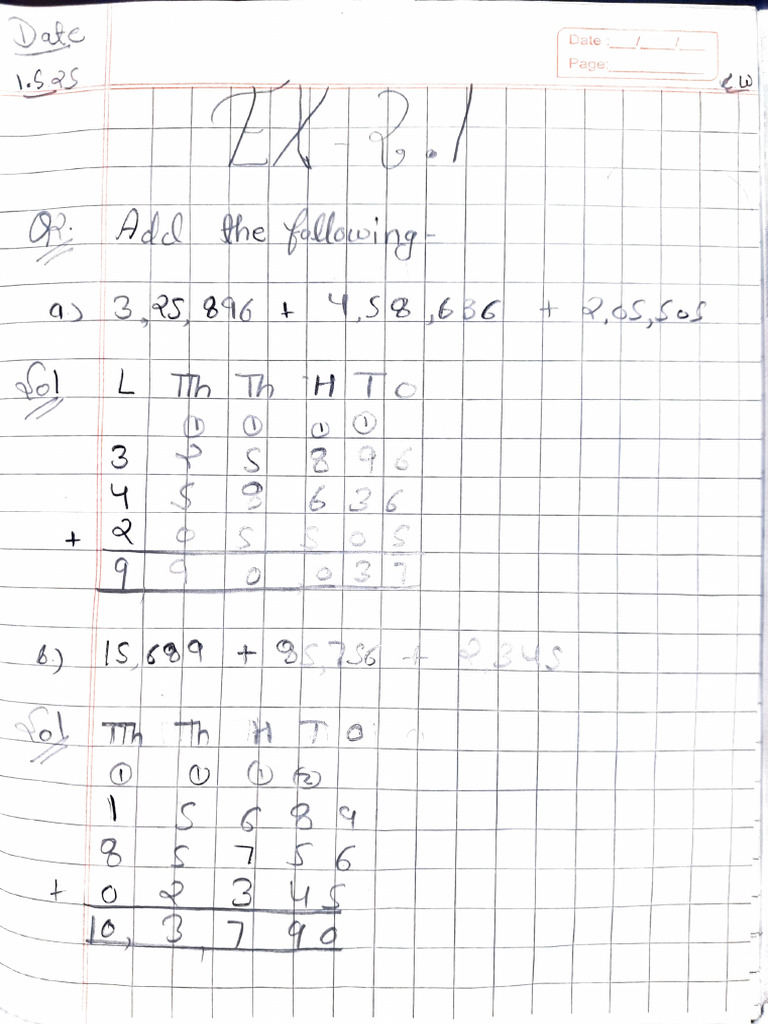 Date
Date : __/__/__
1.5.25
Page:
CW
EX-2.1
Q2. Add the following-
a) 3,25,896 + 4,58,636 + 2,05,505
Sol L TTh Th H T O
1 1 1 1
3 2 5 8 9 6
4 5 8 6 3 6
+ 2 0 5 5 0 5
9 9 0 0 3 7
b.) 15,689 + 85,756 + 2,345
Sol TTh Th H T O
1 1 1 2
1 5 6 8 9
8 5 7 5 6
+ 0 2 3 4 5
10, 3, 7 9 0